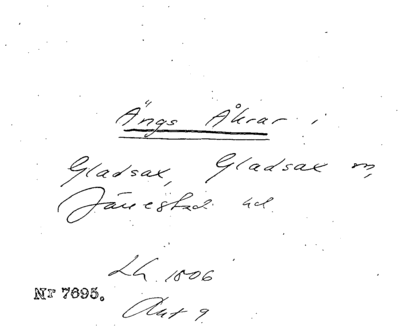 Ängs Åkrar i
Gladsax, Gladsax sn,
Järrestads hd.
Lh. 1806
Akt 9
Nr 7695.